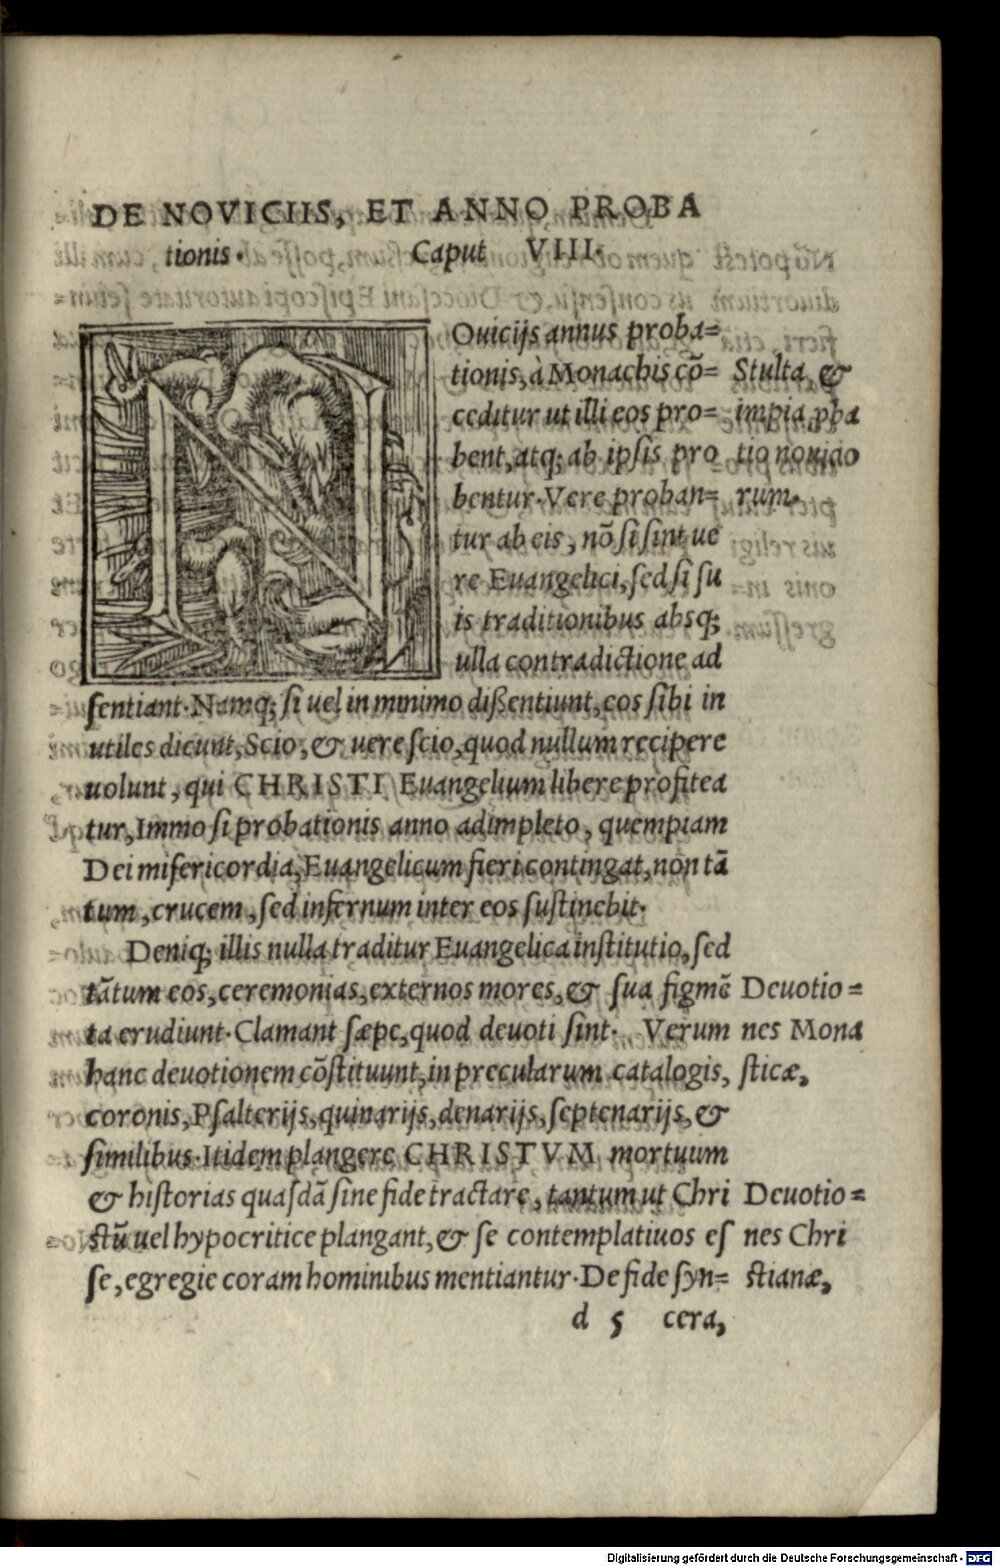 DE NOVICIIS, ET ANNO PROBA
tionis. Caput VIII.
NOuicijs annus proba=
tionis, à Monachis cō=
ceditur ut illi eos pro=
bent, atq; ab ipsis pro
bentur. Vere proban=
tur ab eis, nō si sint ue
re Euangelici, sed si su
is traditionibus absq;
ulla contradictione ad
sentiant. Namq; si uel in minimo dißentiunt, eos sibi in
utiles dicunt, Scio, & uere scio, quod nullum recipere
uolunt, qui CHRISTI Euangelium libere profitea
tur, Immo si probationis anno adimpleto, quempiam
Dei misericordia, Euangelicum fieri contingat, non tā
tum, crucem, sed infernum inter eos sustinebit.
Deniq; illis nulla traditur Euangelica institutio, sed
tātum eos, ceremonias, externos mores, & sua figmē
ta erudiunt. Clamant sæpe, quod deuoti sint. Verum
hanc deuotionem cōstituunt, in precularum catalogis,
coronis, Psalterijs, quinarijs, denarijs, septenarijs, &
similibus. Itidem plangere CHRISTVM mortuum
& historias quasdā sine fide tractare, tantum ut Chri
stū uel hypocritice plangant, & se contemplatiuos es
se, egregie coram hominibus mentiantur. De fide syn=
d 5 cera,
Stulta, &
impia pba
tio nouicio
rum.
Deuotio=
nes Mona
sticæ,
Deuotio=
nes Chri
stianæ,
Digitalisierung gefördert durch die Deutsche Forschungsgemeinschaft - DFG